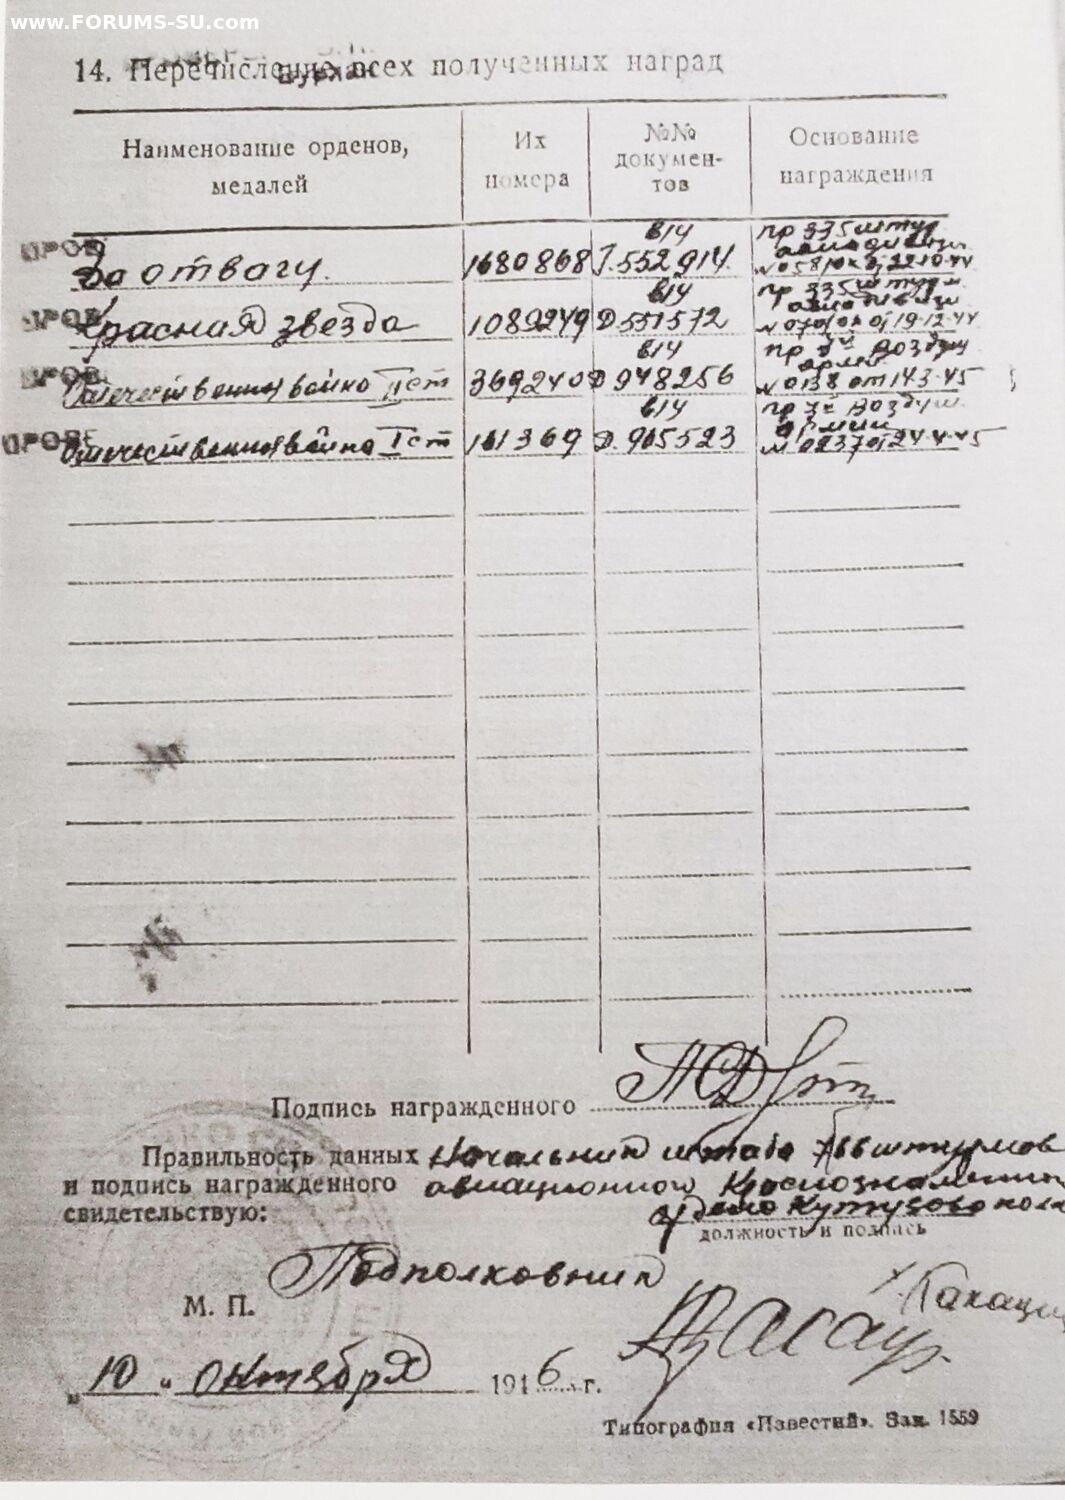 www.FORUMS-SU.com
14. Перечисление всех полученных наград
Наименование орденов, медалей
Их номера
№№ докумен-тов
Основание награждения
ПРОВ За отвагу. 1680868 Г.552914. пр 335 штур авиадивизи №058/н от 22-10-44
ПРОВ Красная звезда 1089249 Д 551572 пр 335 штурм авиадивизи №070/н от 19-12-44
ПРОВ Отечественная война II ст 369240 Д 948256 пр воздуш армии №0138 от 14-3-45
ПРОВЕ Отечественная война I ст 161369 Д.905523 пр 3й воздуш. армии №0237 от 24-4-45
Подпись награжденного
Правильность данных Начальник штаба штурмов
и подпись награжденного авиационного Краснознаменн
свидетельствую: ордена Кутузова полк
должность и подпись
Подполковник
М. П.
„10" октября 1946 г.
Типография «Известий». Зак. 1559